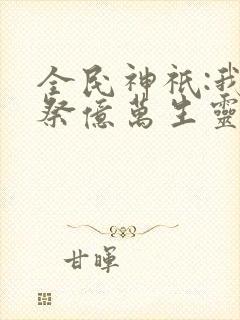 全民神祇:我
祭億萬生靈
甘暉